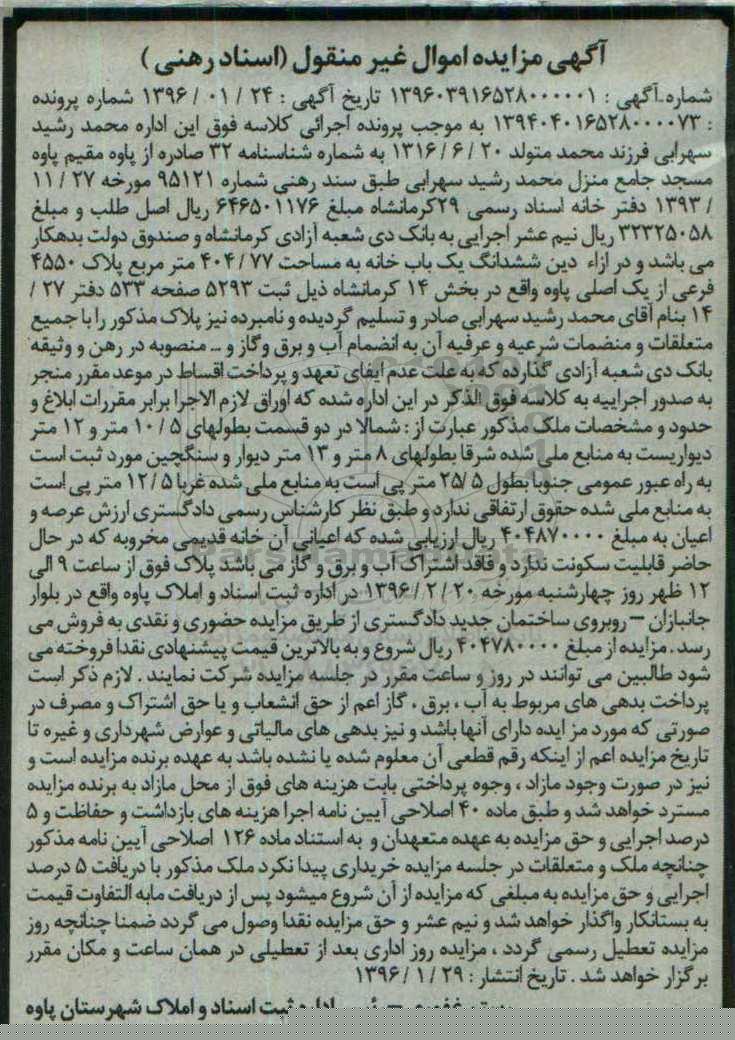 آگهی مزایده اموال غیر منقول (اسناد رهنی)
شماره آگهی : ۱۳۹۶۰۳۹۱۶۵۲۸۰۰۰۰۰۱ تاریخ آگهی : ۲۴ / ۰۱ / ۱۳۹۶ شماره پرونده
: ۱۳۹۴۰۴۰۱۶۵۲۸۰۰۰۰۷۳ به موجب پرونده اجرائی کلاسه فوق این اداره محمد رشید
سهرابی فرزند محمد متولد ۲۰ / ۶ / ۱۳۱۶ به شماره شناسنامه ۳۲ صادره از پاوه مقیم پاوه
مسجد جامع منزل محمد رشید سهرابی طبق سند رهنی شماره ۹۵۱۲۱ مورخه ۲۷ / ۱۱
/ ۱۳۹۳ دفتر خانه اسناد رسمی ۲۹کرمانشاه مبلغ ۶۴۶۵۰۱۱۷۶ ریال اصل طلب و مبلغ
۳۲۳۲۵۰۵۸ ریال نیم عشر اجرایی به بانک دی شعبه آزادی کرمانشاه و صندوق دولت بدهکار
می باشد و در ازاء دین ششدانگ یک باب خانه به مساحت ۷۷ / ۴۰۴ متر مربع پلاک ۴۵۵۰
فرعی از یک اصلی پاوه واقع در بخش ۱۴ کرمانشاه ذیل ثبت ۵۲۹۳ صفحه ۵۳۳ دفتر ۲۷ /
۱۴ بنام آقای محمد رشید سهرابی صادر و تسلیم گردیده و نامبرده نیز پلاک مذکور را با جمیع
متعلقات و منضمات شرعیه و عرفیه آن به انضمام آب و برق وگاز و ... منصوبه در رهن و وثیقه
بانک دی شعبه آزادی گذارده که به علت عدم ایفای تعهد و پرداخت اقساط در موعد مقرر منجر
به صدور اجراییه به کلاسه فوق الذکر در این اداره شده که اوراق لازم الاجرا برابر مقررات ابلاغ و
حدود و مشخصات ملک مذکور عبارت از : شمالا در دو قسمت بطولهای ۵ / ۱۰ متر و ۱۲ متر
دیواریست به منابع ملی شده شرقا بطولهای ۸ متر و ۱۳ متر دیوار و سنگچین مورد ثبت است
به راه عبور عمومی جنوبا بطول ۲۵/۵ متر پی است به منابع ملی شده غربا ۱۲/۵ متر پی است
به منابع ملی شده حقوق ارتفاقی ندارد و طبق نظر کارشناس رسمی دادگستری ارزش عرصه و
اعیان به مبلغ ۴۰۴۸۷۰۰۰۰ ریال ارزیابی شده که اعیانی آن خانه قدیمی مخروبه که در حال
حاضر قابلیت سکونت ندارد و فاقد اشتراک آب و برق و گاز می باشد پلاک فوق از ساعت ۹ الی
۱۲ ظهر روز چهارشنبه مورخه ۲۰ / ۲ / ۱۳۹۶ در اداره ثبت اسناد و املاک پاوه واقع در بلوار
جانبازان – روبروی ساختمان جدید دادگستری از طریق مزایده حضوری و نقدی به فروش می
رسد . مزایده از مبلغ ۴۰۴۷۸۰۰۰۰ ریال شروع و به بالاترین قیمت پیشنهادی نقدا فروخته می
شود طالبین می توانند در روز و ساعت مقرر در جلسه مزایده شرکت نمایند . لازم ذکر است
پرداخت بدهی های مربوط به آب ، برق ، گاز اعم از حق انشعاب و یا حق اشتراک و مصرف در
صورتی که مورد مزایده دارای آنها باشد و نیز بدهی های مالیاتی و عوارض شهرداری و غیره تا
تاریخ مزایده اعم از اینکه رقم قطعی آن معلوم شده یا نشده باشد به عهده برنده مزایده است و
نیز در صورت وجود مازاد ، وجوه پرداختی بابت هزینه های فوق از محل مازاد به برنده مزایده
مسترد خواهد شد و طبق ماده ۴۰ اصلاحی آیین نامه اجرا هزینه های بازداشت و حفاظت و ۵
درصد اجرایی و حق مزایده به عهده متعهدان و به استناد ماده ۱۲۶ اصلاحی آیین نامه مذکور
چنانچه ملک و متعلقات در جلسه مزایده خریداری پیدا نکرد ملک مذکور با دریافت ۵ درصد
اجرایی و حق مزایده به مبلغی که مزایده از آن شروع میشود پس از دریافت مابه التفاوت قیمت
به بستانکار واگذار خواهد شد و نیم عشر و حق مزایده نقدا وصول می گردد ضمنا چنانچه روز
مزایده تعطیل رسمی گردد ، مزایده روز اداری بعد از تعطیلی در همان ساعت و مکان مقرر
برگزار خواهد شد . تاریخ انتشار : ۲۹ / ۱ / ۱۳۹۶
ثبت اسناد و املاک شهرستان پاوه